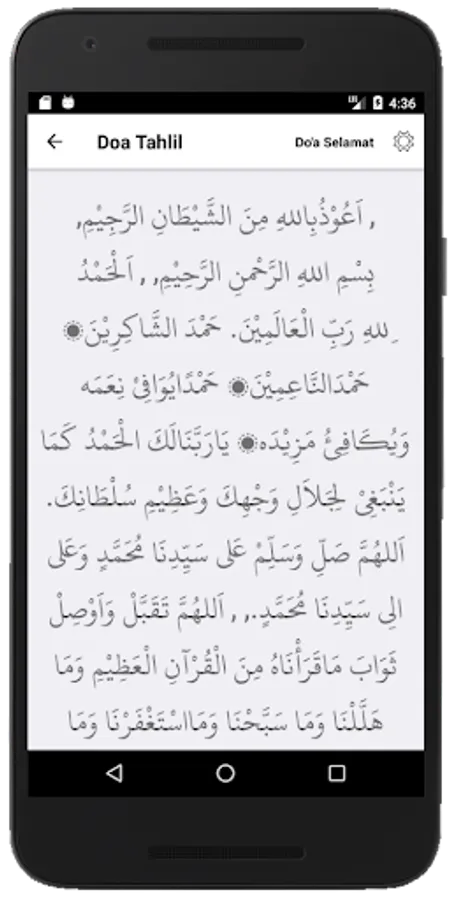 4:36
Doa Tahlil
Do'a Selamat
, اَعُوْذُبِاللهِ مِنَ الشَّيْطَانِ الرَّجِيْمِ,
بِسْمِ اللهِ الرَّحْمنِ الرَّحِيْمِ, , اَلْحَمْدُ
ِللهِ رَبِّ الْعَالَمِيْنَ. حَمْدَ الشَّاكِرِيْنَ۞
حَمْدَالنَّاعِمِيْنَ۞ حَمْدًايُوَافِىْ نِعَمَه
وَيُكَافِئُ مَزِيْدَه۞ يَارَبَّنَالَكَ الْحَمْدُ كَمَا
يَنْبَغِىْ لِجَلاَلِ وَجْهِكَ وَعَظِيْمِ سُلْطَانِكَ.
اَللهُمَّ صَلِّ وَسَلِّمْ عَلى سَيِّدِنَا مُحَمَّدٍ وَعَلى
الِى سَيِّدِنَا مُحَمَّدٍ., , اَللهُمَّ تَقَبَّلْ وَاَوْصِلْ
ثَوَابَ مَاقَرَأْنَاهُ مِنَ الْقُرْآنِ الْعَظِيْمِ وَمَا
هَلَّلْنَا وَمَا سَبَّحْنَا وَمَااسْتَغْفَرْنَا وَمَا